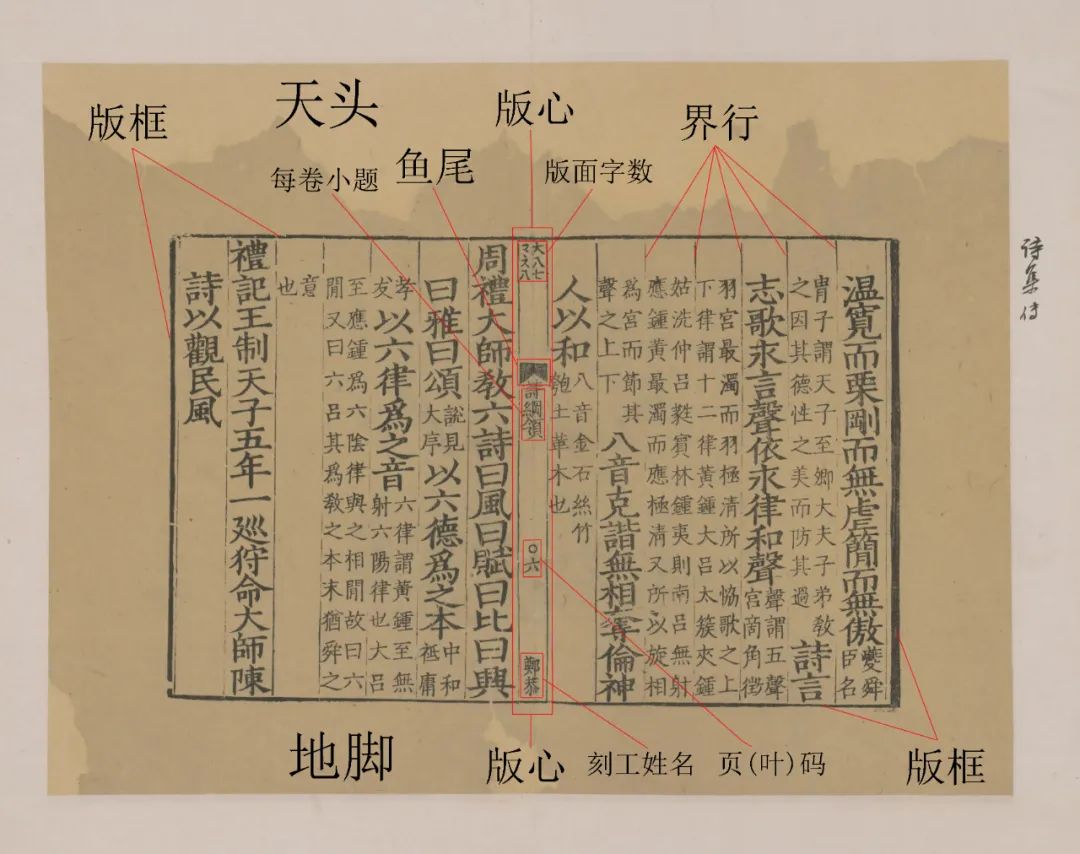 天头
版框
版心
界行
鱼尾
每卷小题
版面字数
詩集傳
温寬而栗剛而無虐簡而無傲
夔舜
臣名
冑子謂天子至卿大夫子弟敎
之因其德性之美而防其過
詩言
志歌永言聲依永律和聲
聲謂五聲
宮商角徵
羽宮最濁而羽極清所以恊歌之上
下律謂十二律黃鍾大呂太簇夾鍾
姑洗仲呂蕤賓林鍾夷則南呂無射
應鍾黃最濁而應極清又所以旋相
爲宮而節其
聲之上下
八音克諧無相奪倫神
人以和
八音金石絲竹
匏土革木也
大八七
詩綱領
○六
鄭恭
周禮大師敎六詩曰風曰賦曰比曰興
曰雅曰頌
說見
大序
以六德爲之本
中和
祗庸
孝
友
以六律爲之音
六律謂黃鍾至無
射六陽律也大呂
至應鍾爲六陰律與之相間故曰六
間又曰六呂其爲敎之本末猶舜之
意
也
禮記王制天子五年一廵狩命大師陳
詩以觀民風
地脚
版心
刻工姓名
页(叶)码
版框